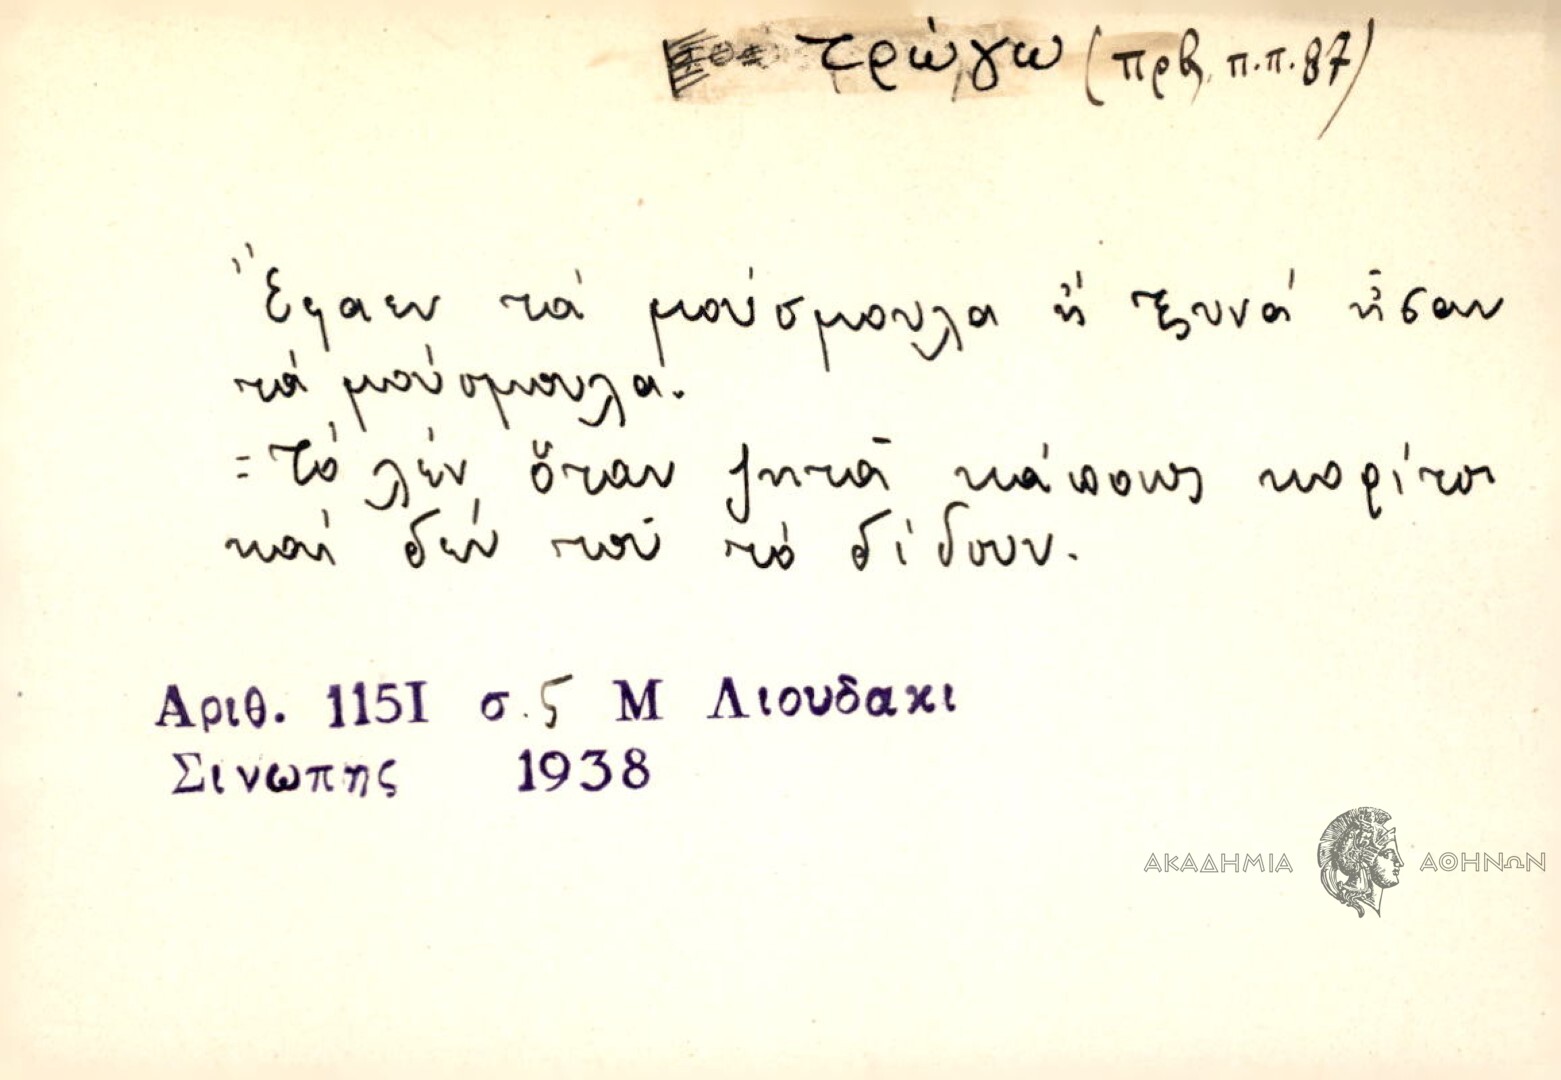 τρώγω (πρβ. π.π. 87)
Ἔφαεν τά μούσμουλα ἤ ξυνά ἦσαν
τά μούσμουλα.
= Τό λέν ὅταν ζητᾶ κάποιος κορίτσι
καί δέν τοῦ τό δίδουν.
Αριθ. 1151 σ. 5 Μ Λιουδακι
Σινωπης 1938
ΑΚΑΔΗΜΙΑ ΑΘΗΝΩΝ